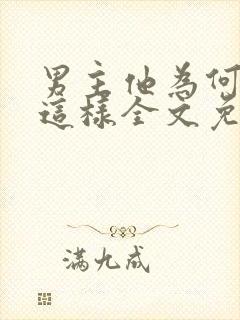 男主他為何
這樣全文免
满九成